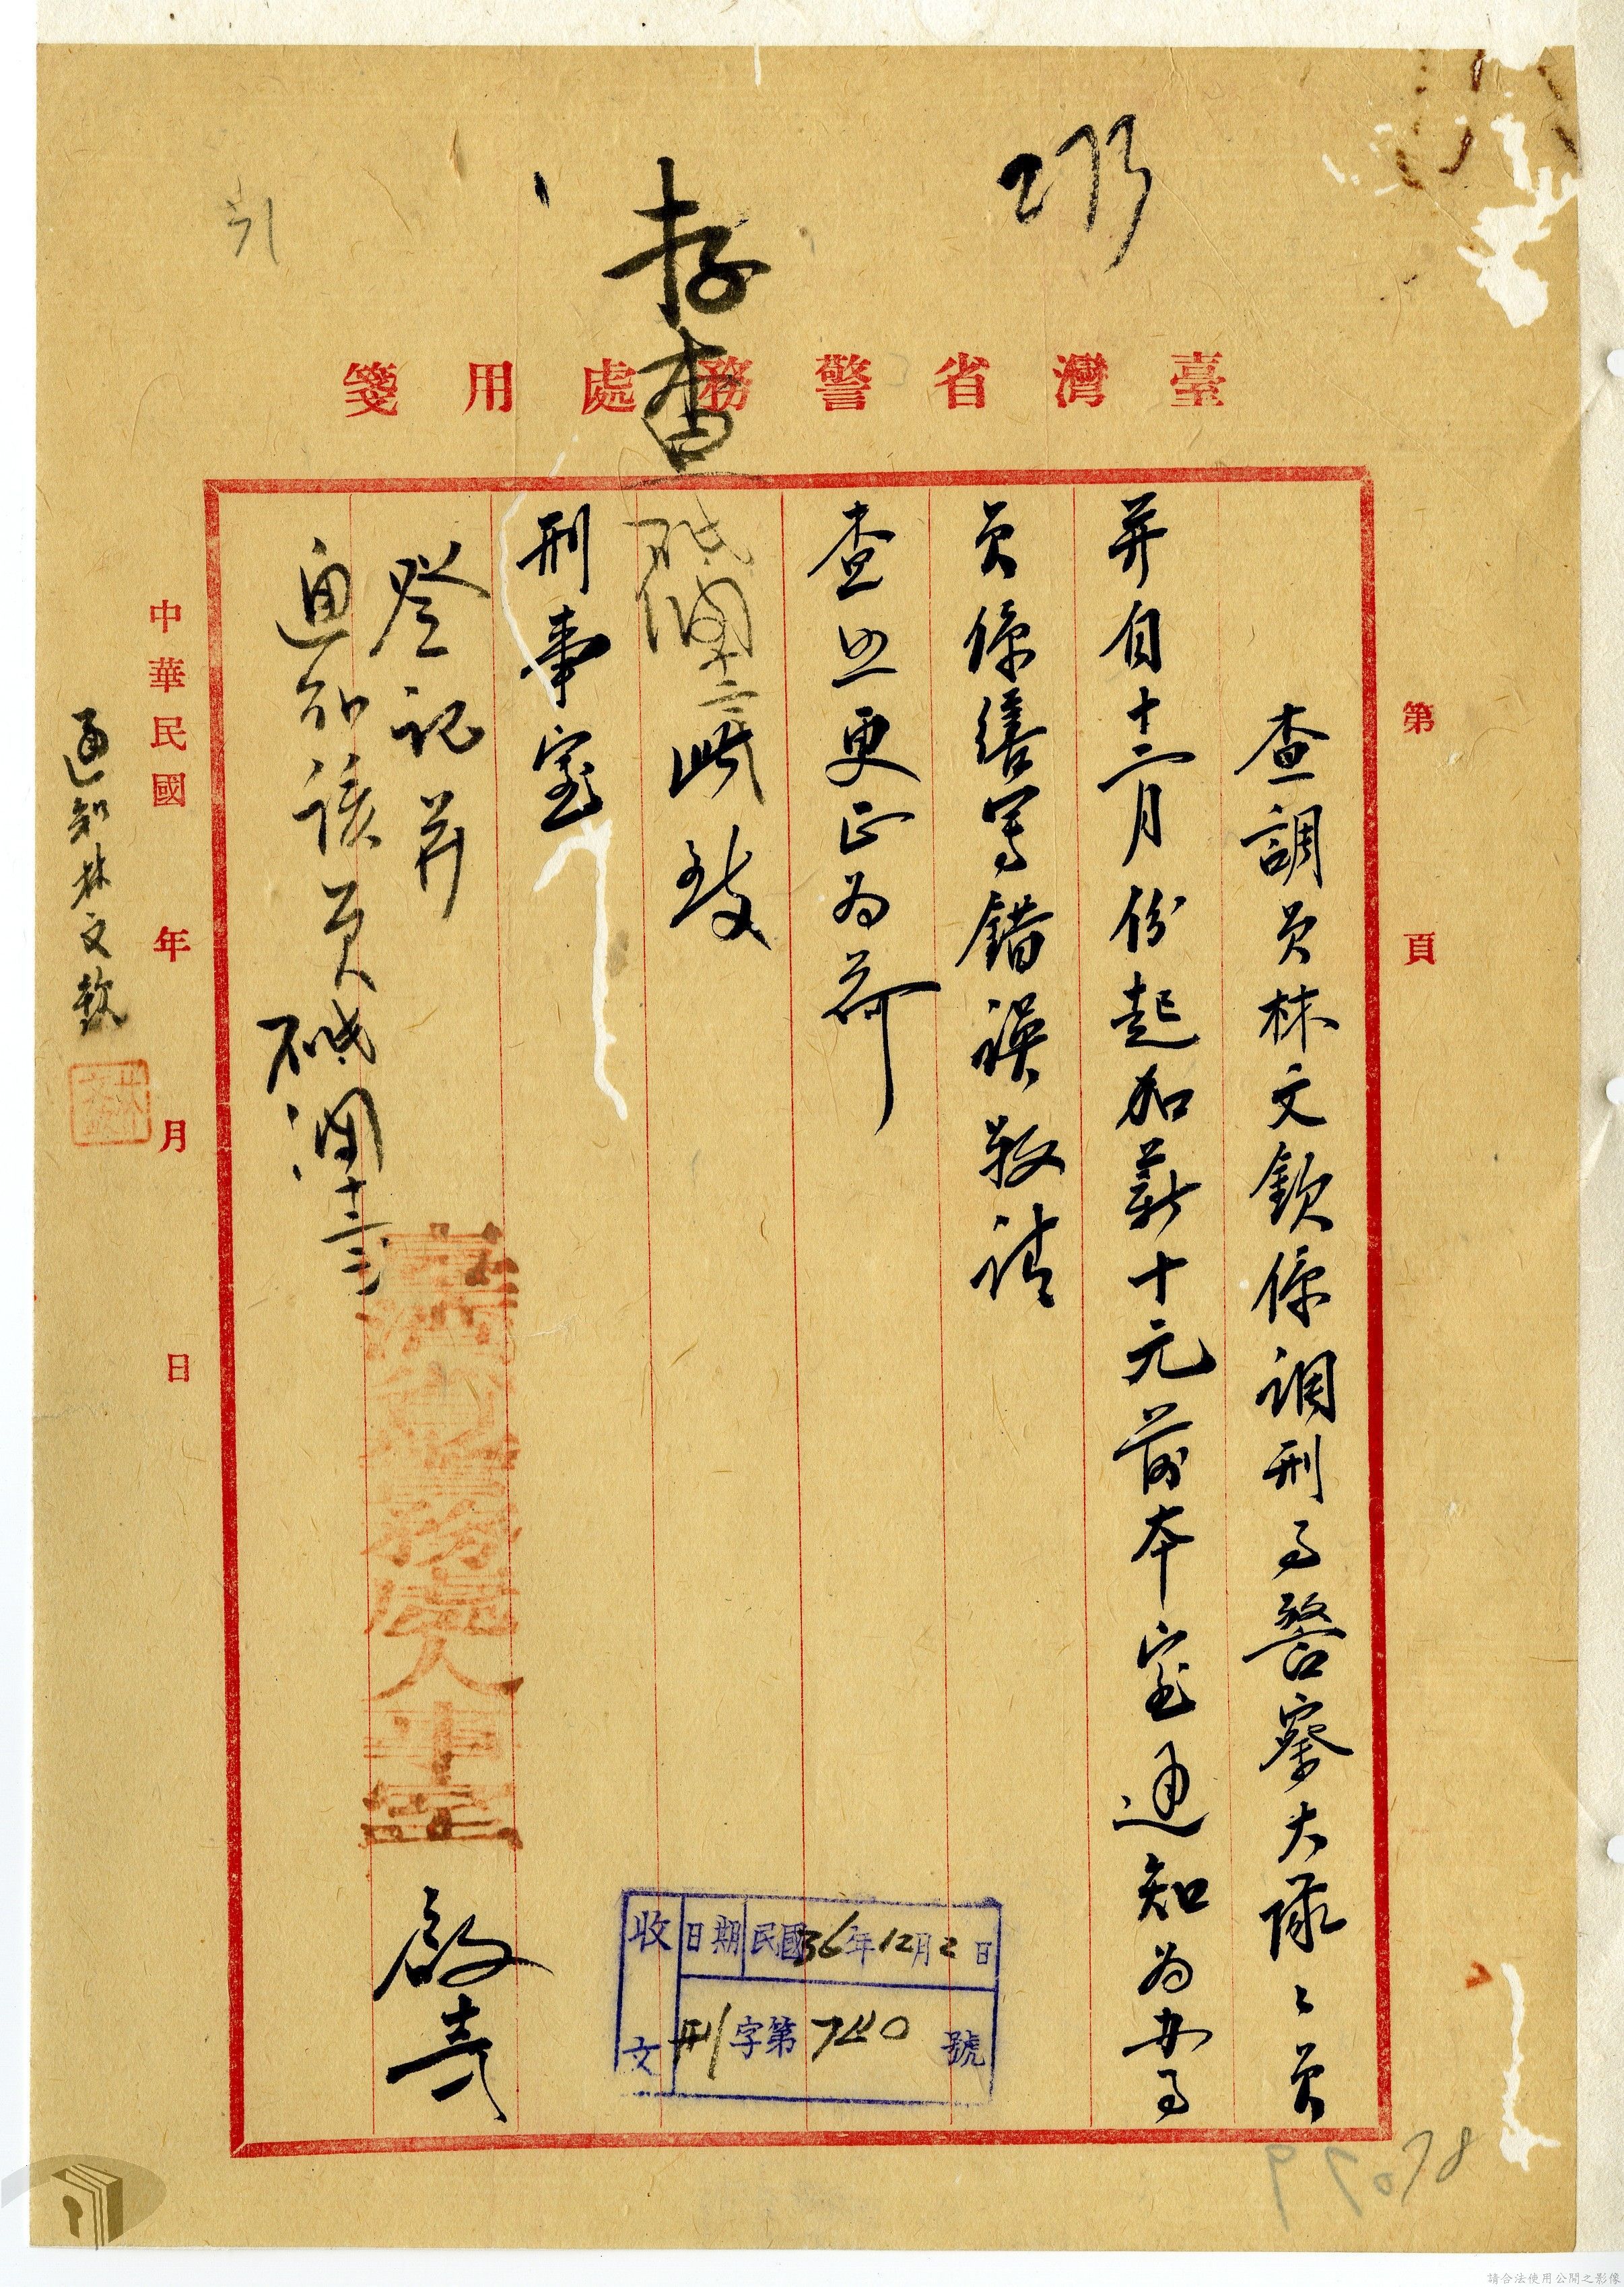 273
存查
臺灣省警務處用箋
第 頁
查調員林文欽係調刑事警察大隊之員
并自十二月份起加薪十元前本室通知為办事
員係繕寫錯誤敬請
查照更正為荷
此致
刑事室
臺灣省警務處人事室 啟
登記并
通知該員
中華民國 年 月 日
通知林文欽
收文 日期 民國36年12月2日
刑字第 號
78
請合法使用公開之影像